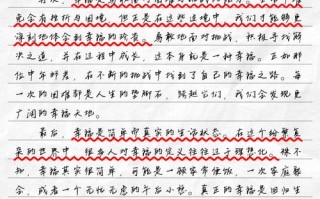 免会有挫折与困境，但正是在这些逆境中，我们才能够更
深刻地体会到幸福的珍贵。勇敢地面对挑战，积极寻找解
决之道，并在过程中成长，这本身就是一种幸福。正如那
位中年好者，在不断的挑战中找到了自己的幸福之路。每
一次的困难都是人生的垫脚石，跨越它们，我们会发现更
广阔的幸福天地。
最后，幸福是简单而真实的生活状态。在这个纷繁复
杂的世界中，很多人对幸福的定义往往过于理想化。殊不
知，幸福其实很简单，可能是一顿家常便饭，一次家庭聚
会，或者一个无忧无虑的午后小憩。真正的幸福是回归生